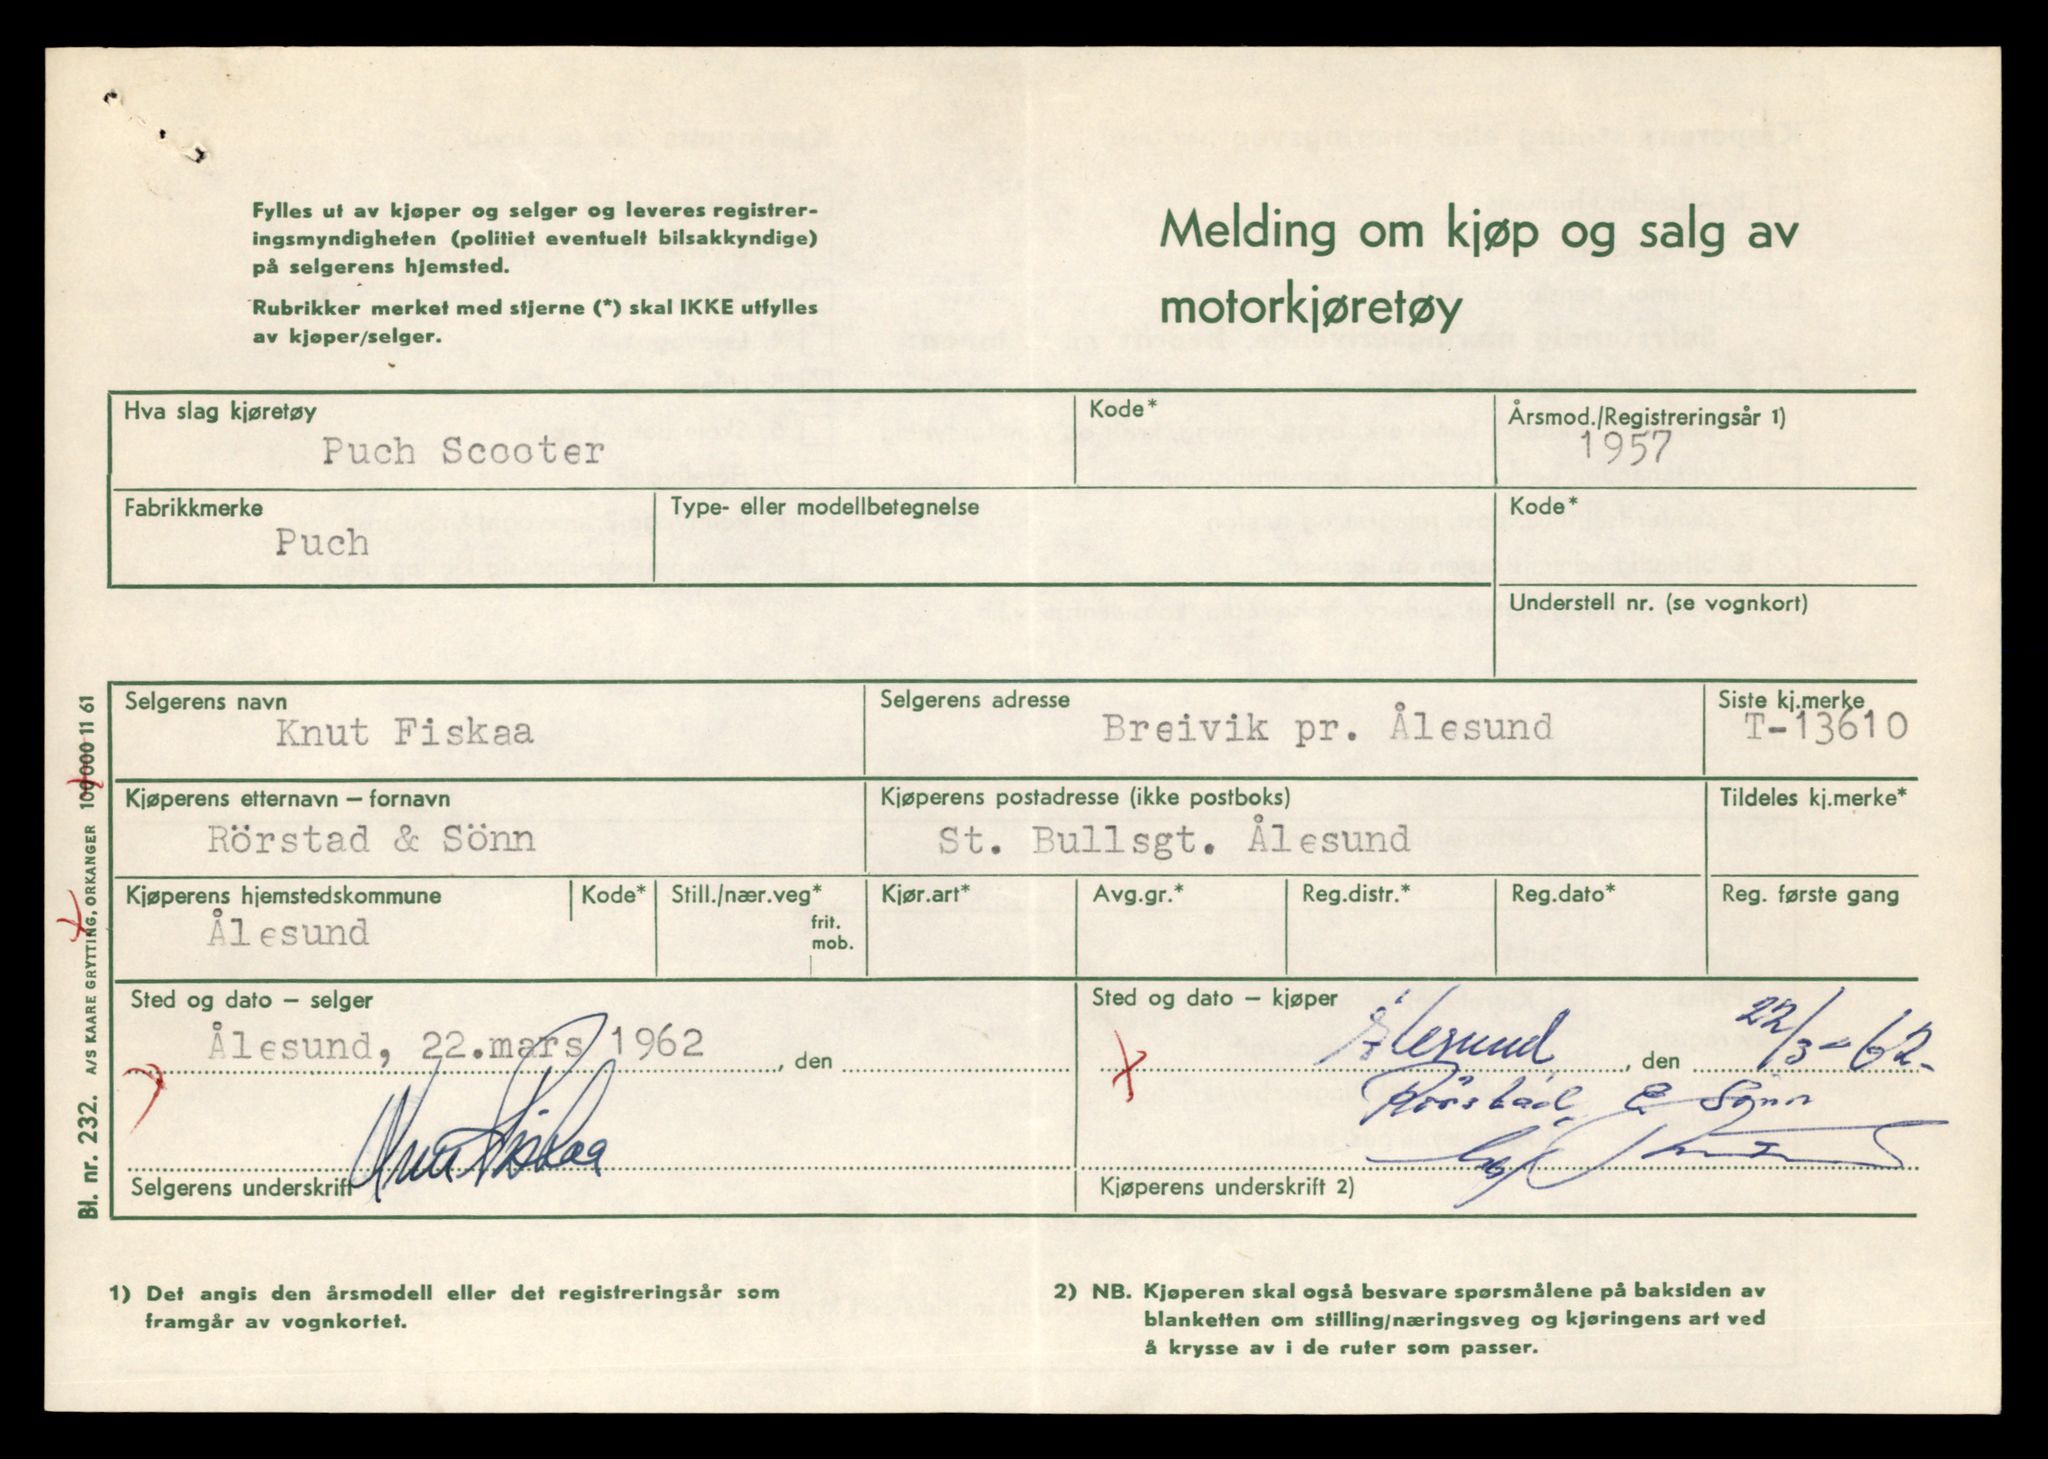 Fylles ut av kjøper og selger og leveres registrer-
ingsmyndigheten (politiet eventuelt bilsakkyndige)
på selgerens hjemsted.
Rubrikker merket med stjerne (*) skal IKKE utfylles
av kjøper/selger.
Melding om kjøp og salg av
motorkjøretøy
Hva slag kjøretøy
Puch Scooter
Kode*
Årsmod./Registreringsår 1)
1957
Fabrikkmerke
Puch
Type- eller modellbetegnelse
Kode*
Understell nr. (se vognkort)
Selgerens navn
Knut Fiskaa
Selgerens adresse
Breivik pr. Ålesund
Siste kj.merke
T-13610
Kjøperens etternavn – fornavn
Rörstad & Sönn
Kjøperens postadresse (ikke postboks)
St. Bullsgt. Ålesund
Tildeles kj.merke*
Kjøperens hjemstedskommune
Ålesund
Kode*
Still./nær.veg*
frit.
mob.
Kjør.art*
Avg.gr.*
Reg.distr.*
Reg.dato*
Reg. første gang
Sted og dato – selger
Ålesund, 22.mars 1962 , den
Knut Fiskaa
Selgerens underskrift
Sted og dato – kjøper
Ålesund , den 22/3-62.
Rörstad & Sönn
Kjøperens underskrift 2)
Bl. nr. 232. A/S KAARE GRYTTING, ORKANGER 100 000 11 61
1) Det angis den årsmodell eller det registreringsår som
framgår av vognkortet.
2) NB. Kjøperen skal også besvare spørsmålene på baksiden av
blanketten om stilling/næringsveg og kjøringens art ved
å krysse av i de ruter som passer.